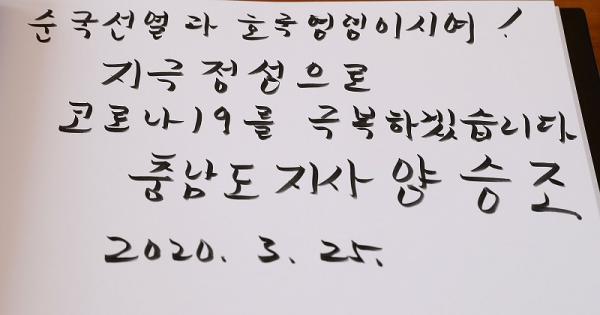 순국선열과 호국영령이시여!
지극정성으로
코로나19를 극복하겠습니다
충남도지사 양승조
2020. 3. 25.